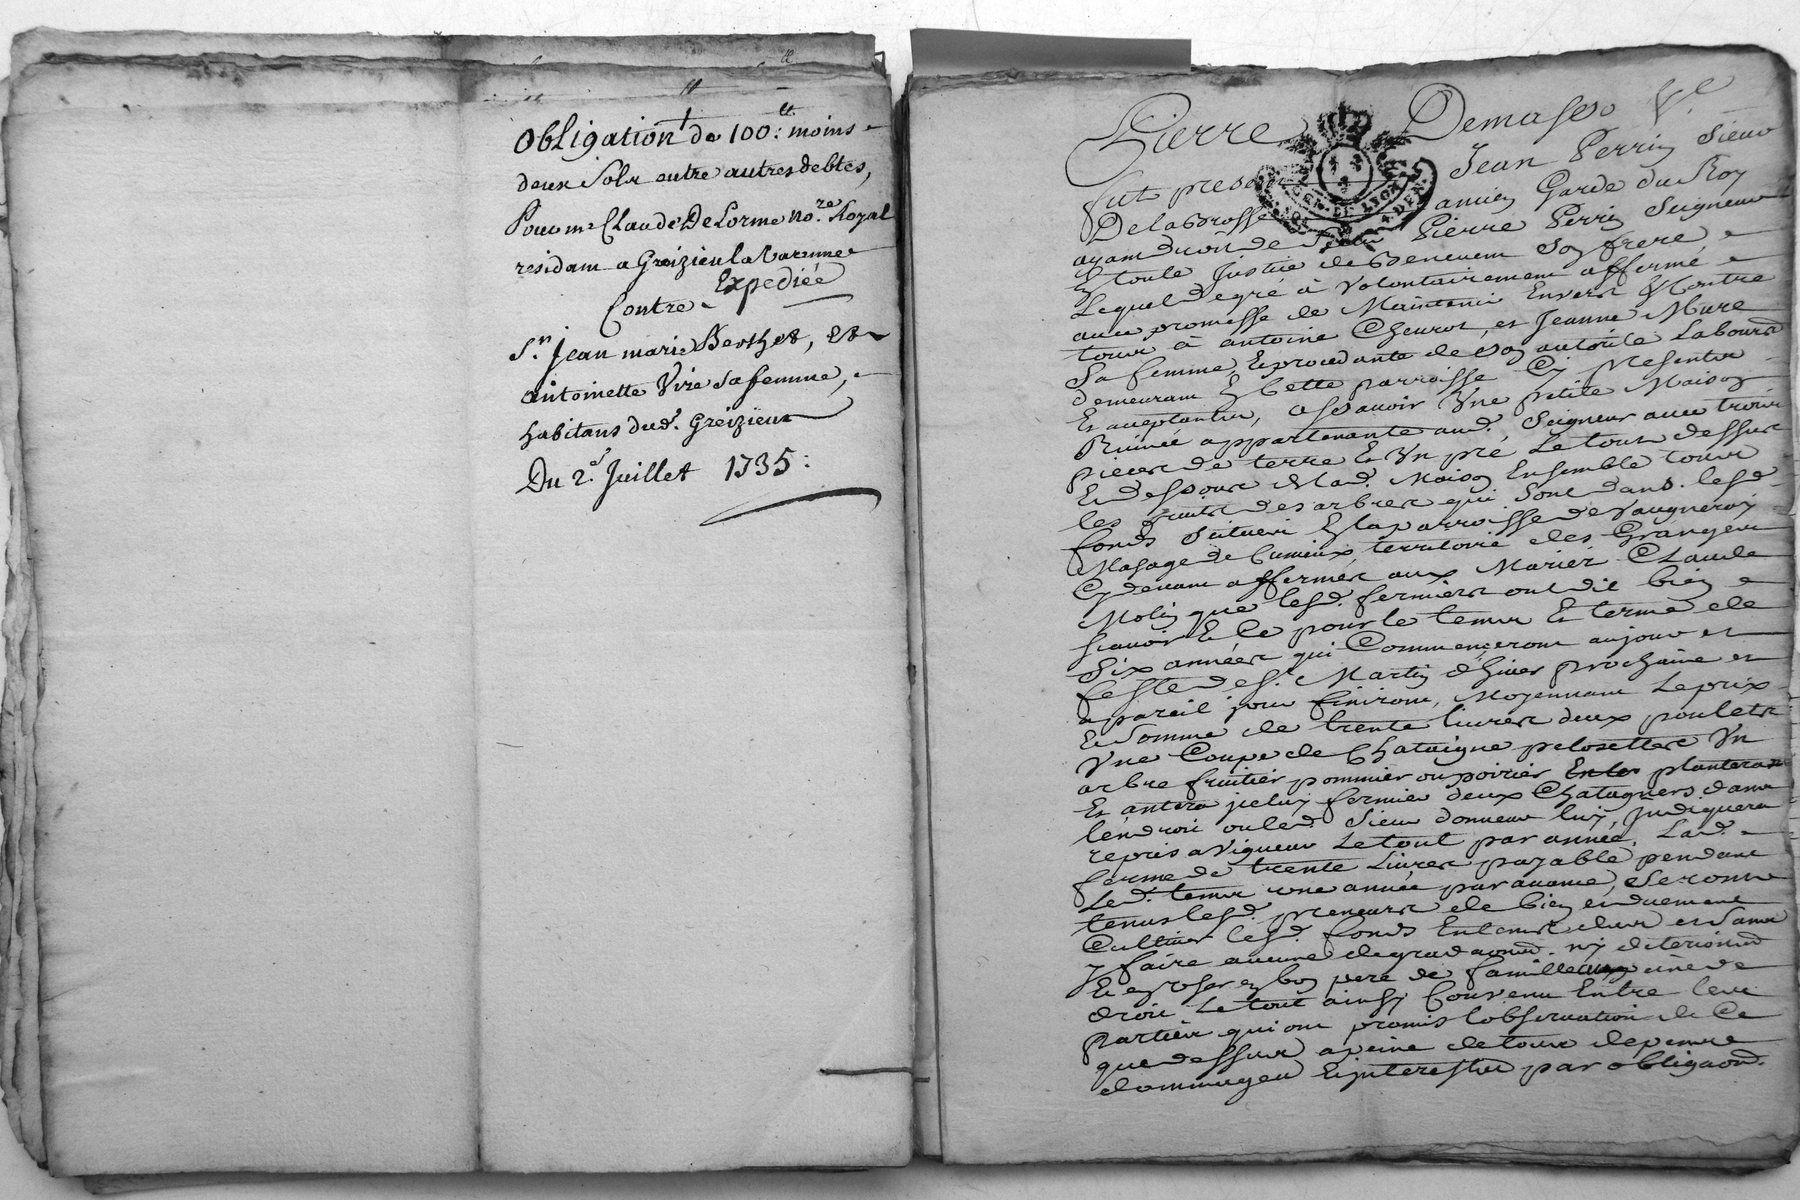 Obligation de 100:ᵗᵗ moins
deux Sols entre autres debtes,
Pour mᵉ Claude DeLorme noʳᵉ Royal
residant a Greizieu la Varenne
Expediée
Contre
Sʳ Jean marie Berthet, Et
antoinette Vire sa femme,
habitans dud. Greizieu
Du 2ᵉ Juillet 1735:
Pierre Demasso
fut present Jean Perrin Sieur
De la Brosse ancien Garde du Roy
ayant droit de Pierre Perrin Seigneur
En toute Justice de Benevent son frere
Lequel de gré à volontairement affermé
avec promesse de Maintenir Envers & Contre
tous à antoine Cheurot, et Jeanne Mure
Sa femme, Le procedante de son autorité Labours
demeurant En Cette parroisse Cy presents
Et acceptants, a Sçavoir Une petite Maison
Ruinée appartenante aud. Seigneur avec trois
pieces de terre & Un pré Le tout dessus
Et dessous Lad. Maison Ensemble tous
les fruits des arbres qui Sont dans lesd.
fonds Scitues En la parroisse de Vaugneray
Masage de territoire des Granges
Cy devant affermés aux Mariés Claude
Molin que lesd. fermiers ont dit bien
scavoir & Ce pour le tems & terme de
Six années qui Commenceront au jour et
feste de Sᵗ Martin d'hiver prochaine et
a pareil jour finiront, Moyennant Le prix
& Somme de trente livres deux poulets
Une Coupe de Chataigne pelosettes Un
arbre fruitier pommier ou poirier plantera
Et antera jceluy fermier deux Chatagners dans
lendroit ou led. Sieur donneur luy Jndiquera
repris a Vigueur Le tout par année, Lad.
ferme de trente Livres payable pendant
Led. tems une année par avance, Seront
tenus lesd. preneurs de bien et duement
Cultiver lesd. fonds Entems dus et Sans
y faire aucune degradaond. ny deteriond
Et en user en bon pere de famille
droit Le tout ainsy Convenu Entre les
Parties qui ont promis l'observation de Ce
que dessus a peine de tous depens
dommages & jnterests par obligaond.